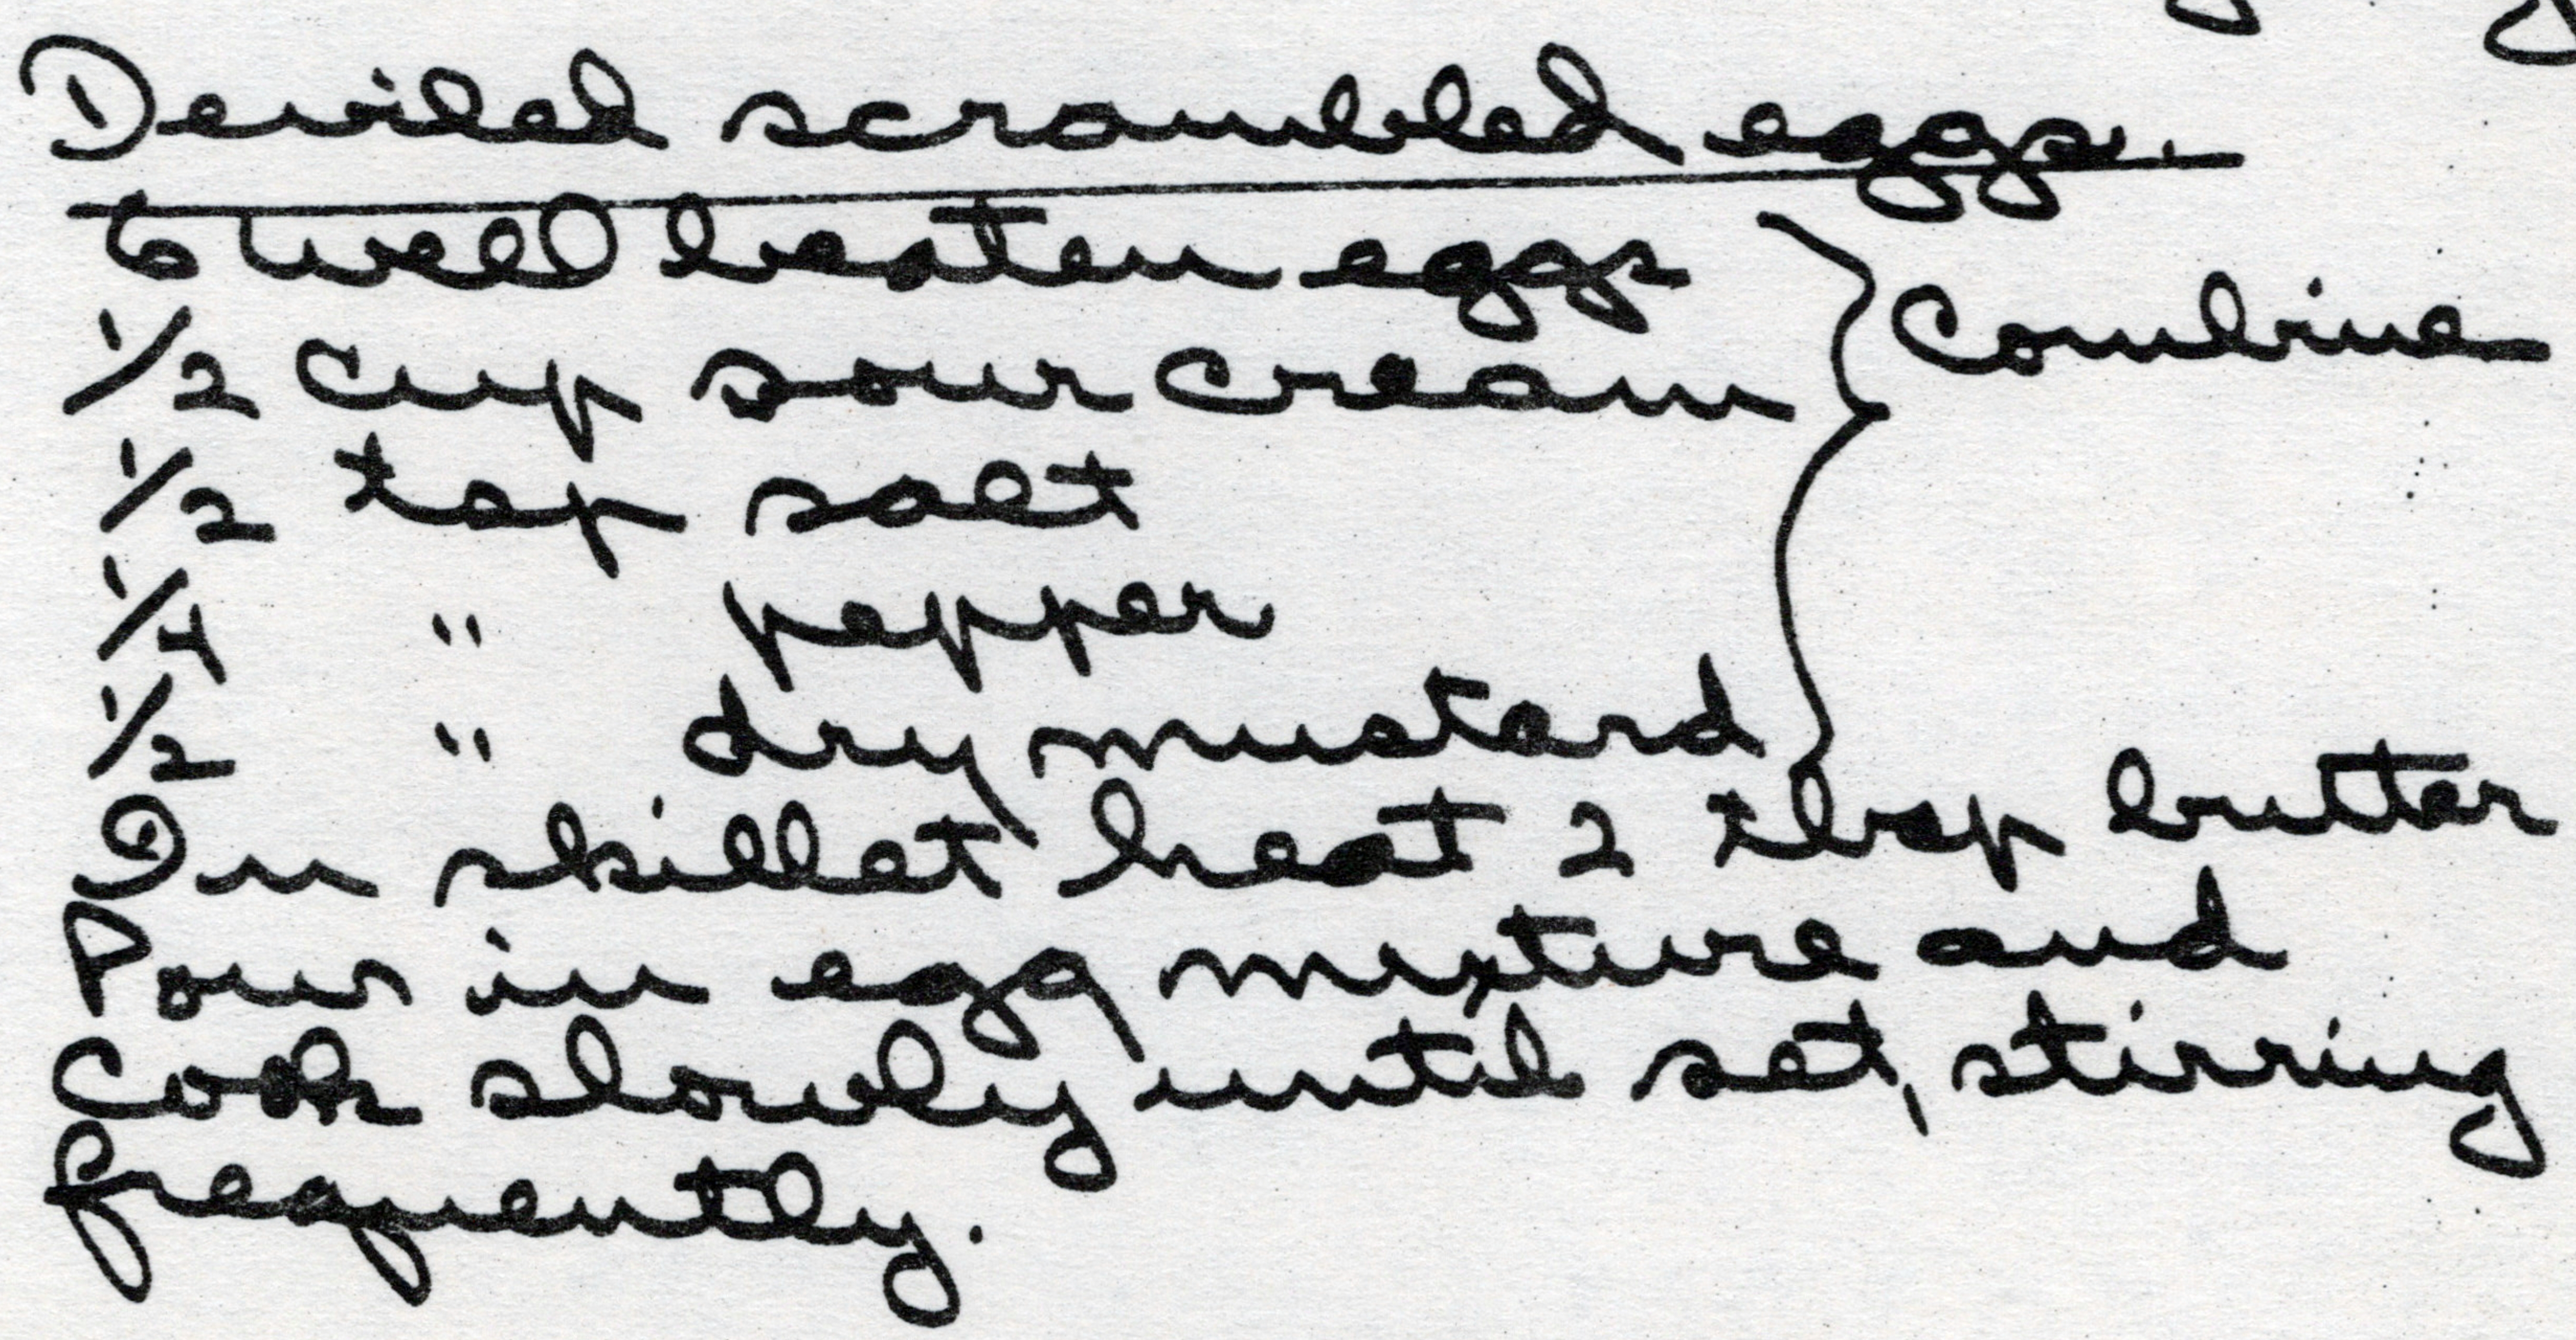 Deviled scrambled eggs.
6 well beaten eggs
1/2 cup sour cream } Combine
1/2 tsp salt
1/4 " pepper
1/2 " dry mustard
In skillet heat 2 tbsp butter
Pour in egg mixture and
Cook slowly until set, stirring
frequently.